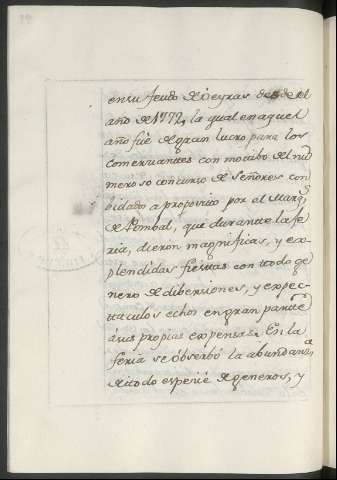 en su feudo de Oeyras desde el
año de 1772, la qual en aquel
año fué de gran lucro para los
comerciantes con motibo del nu
meroso concurso de Señores con
bidados a proposito por al Marqs
de Pombal, que durante la fe
ria, dieron magnificas, y ex
plendidas fiestas con todo ge
nero de dibersiones, y expec
taculos echos en gran parte
á sus propias expensas. En la
feria se óbserbó la abundanza
de todo especie de generos, y